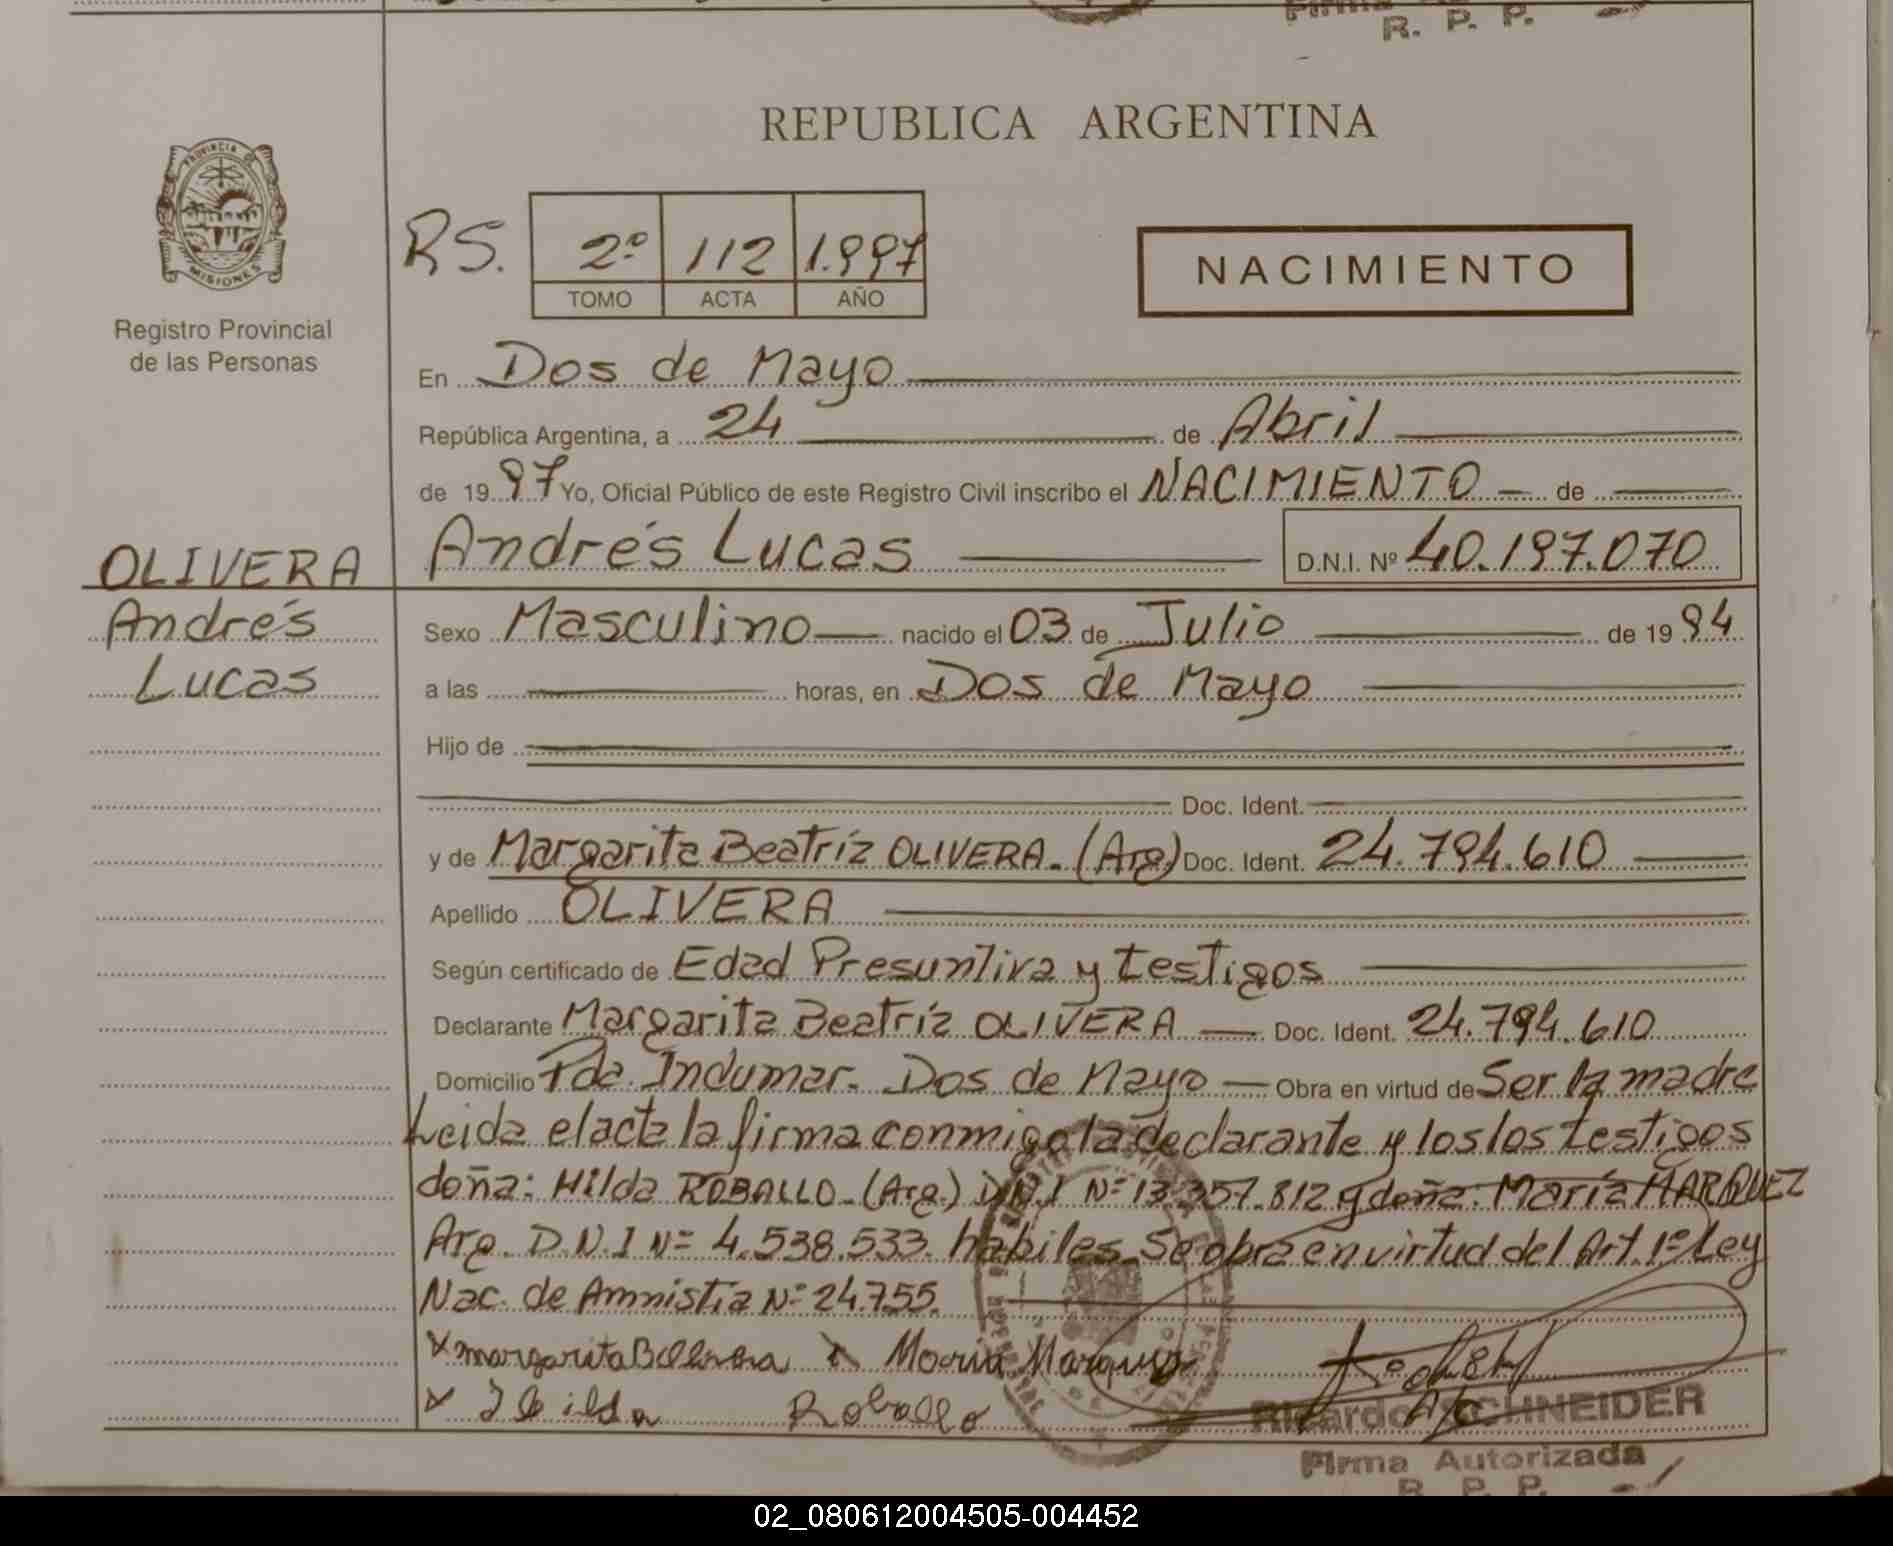 R. P. P.
REPUBLICA ARGENTINA
PROVINCIA DE
MISIONES
Registro Provincial
de las Personas
RS. 2º 112 1.997
TOMO ACTA AÑO
NACIMIENTO
En Dos de Mayo
República Argentina, a 24 de Abril
de 1997 Yo, Oficial Público de este Registro Civil inscribo el NACIMIENTO de
Andrés Lucas D.N.I. Nº 40.197.070
OLIVERA
Andrés
Lucas
Sexo Masculino nacido el 03 de Julio de 1994
a las horas, en Dos de Mayo
Hijo de
Doc. Ident.
y de Margarita Beatríz OLIVERA. (Arg) Doc. Ident. 24.794.610
Apellido OLIVERA
Según certificado de Edad Presuntiva y testigos
Declarante Margarita Beatríz OLIVERA Doc. Ident. 24.794.610
Domicilio Pda. Indumar. Dos de Mayo Obra en virtud de Ser la madre
Leida el acta la firma conmigo la declarante y los los testigos
doña: Hilda ROBALLO. (Arg.) D.N.I Nº 13.357.812 y doña: María MARQUEZ
Arg. D.N.I Nº 4.538.533. habiles. Se obra en virtud del Art. 1º Ley
Nac. de Amnistía Nº 24.755.
x margarita B Olivera x Maria Marquez
x Ililda Roballo
Ricardo SCHNEIDER
Firma Autorizada
R. P. P.
02_080612004505-004452